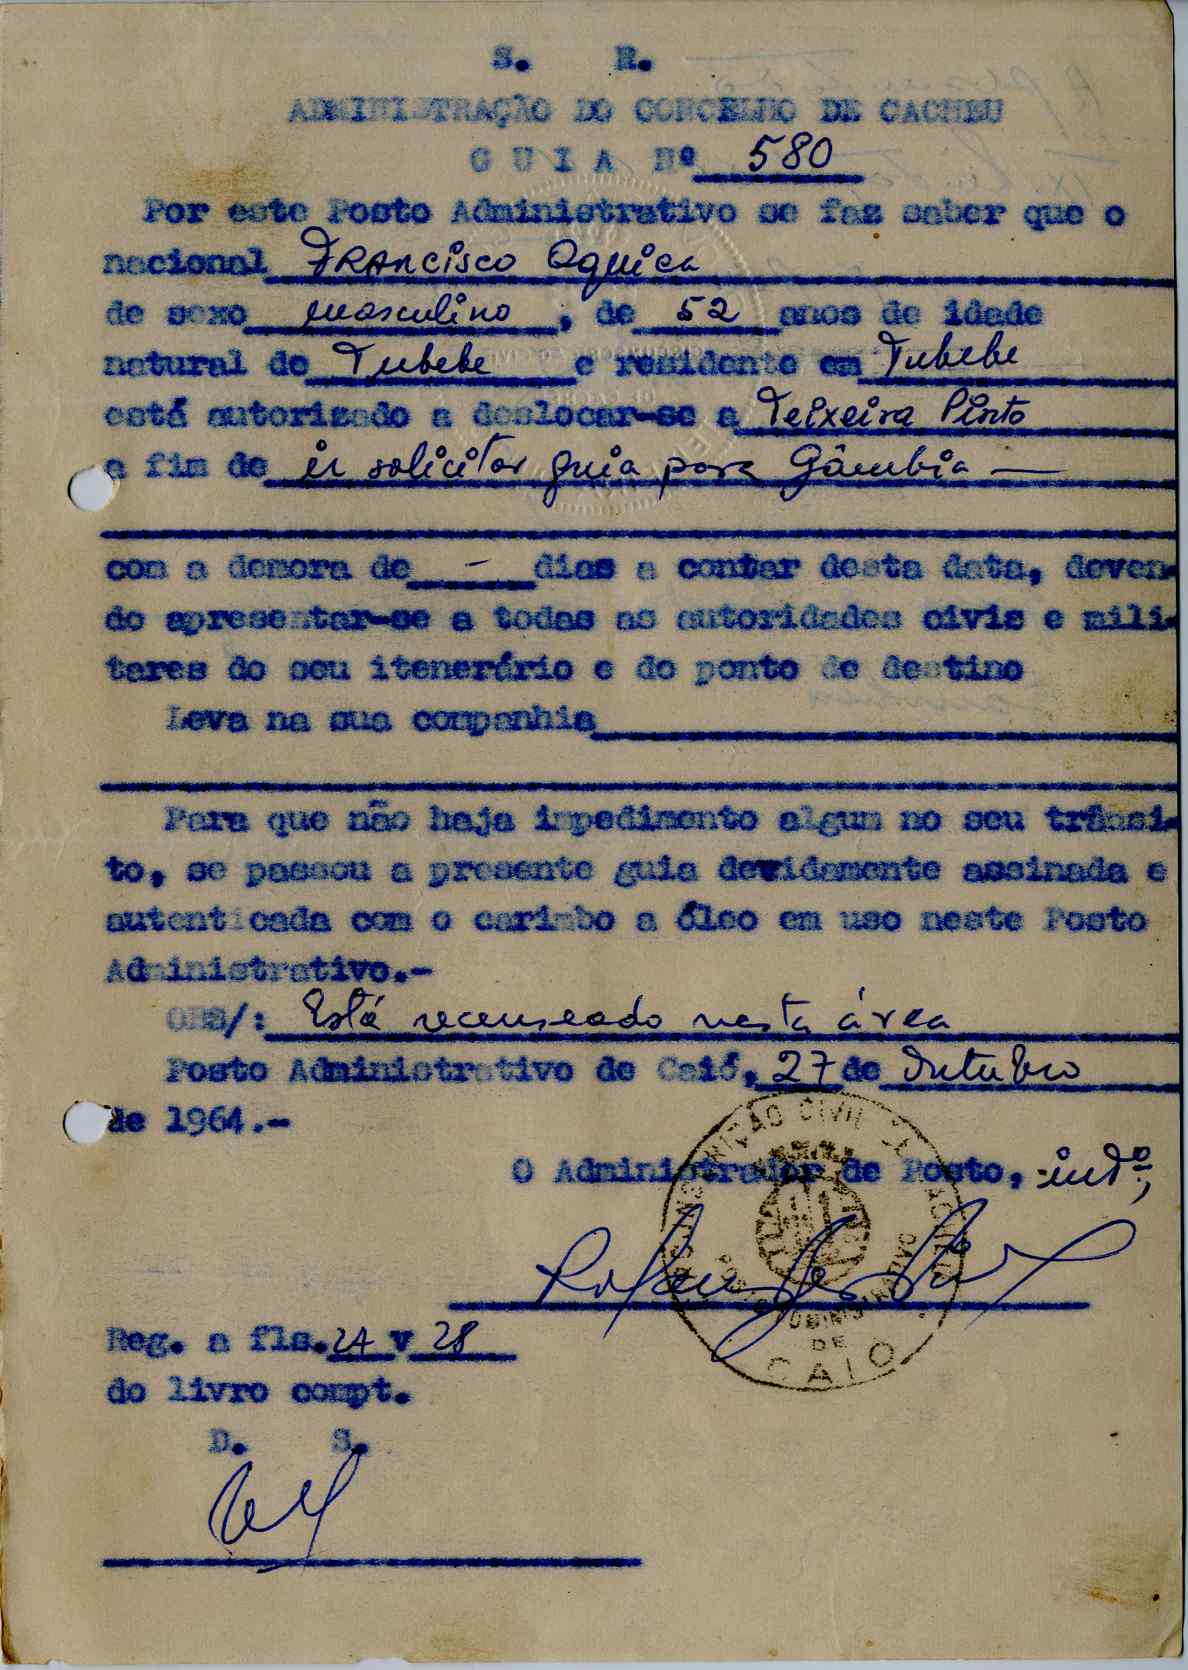 S. R.
ADMINISTRAÇÃO DO CONCELHO DE CACHEU
GUIA Nº 580
Por este Posto Administrativo se faz saber que o
nacional Francisco Oquica
de sexo masculino, de 52 anos de idade
natural de Tubebe e residente em Tubebe
está autorizado a deslocar-se a Teixeira Pinto
a fim de ir solicitar guia para Gâmbia —
com a demora de - dias a contar desta data, deven-
do apresentar-se a todas as autoridades civis e mili-
tares do seu itenerário e do ponto de destino
Leva na sua companhia
Para que não haja impedimento algum no seu trânsi-
to, se passou a presente guia devidamente assinada e
autenticada com o carimbo a óleo em uso neste Posto
Administrativo.-
OBS/: Está recenseado nesta área
Posto Administrativo de Caió, 27 de Outubro
de 1964.-
O Administrador de Posto, intº,
POSTO ADMINISTRATIVO
DE
CAIO
Reg. a fls. 24 v 28
do livro compt.
D. S.